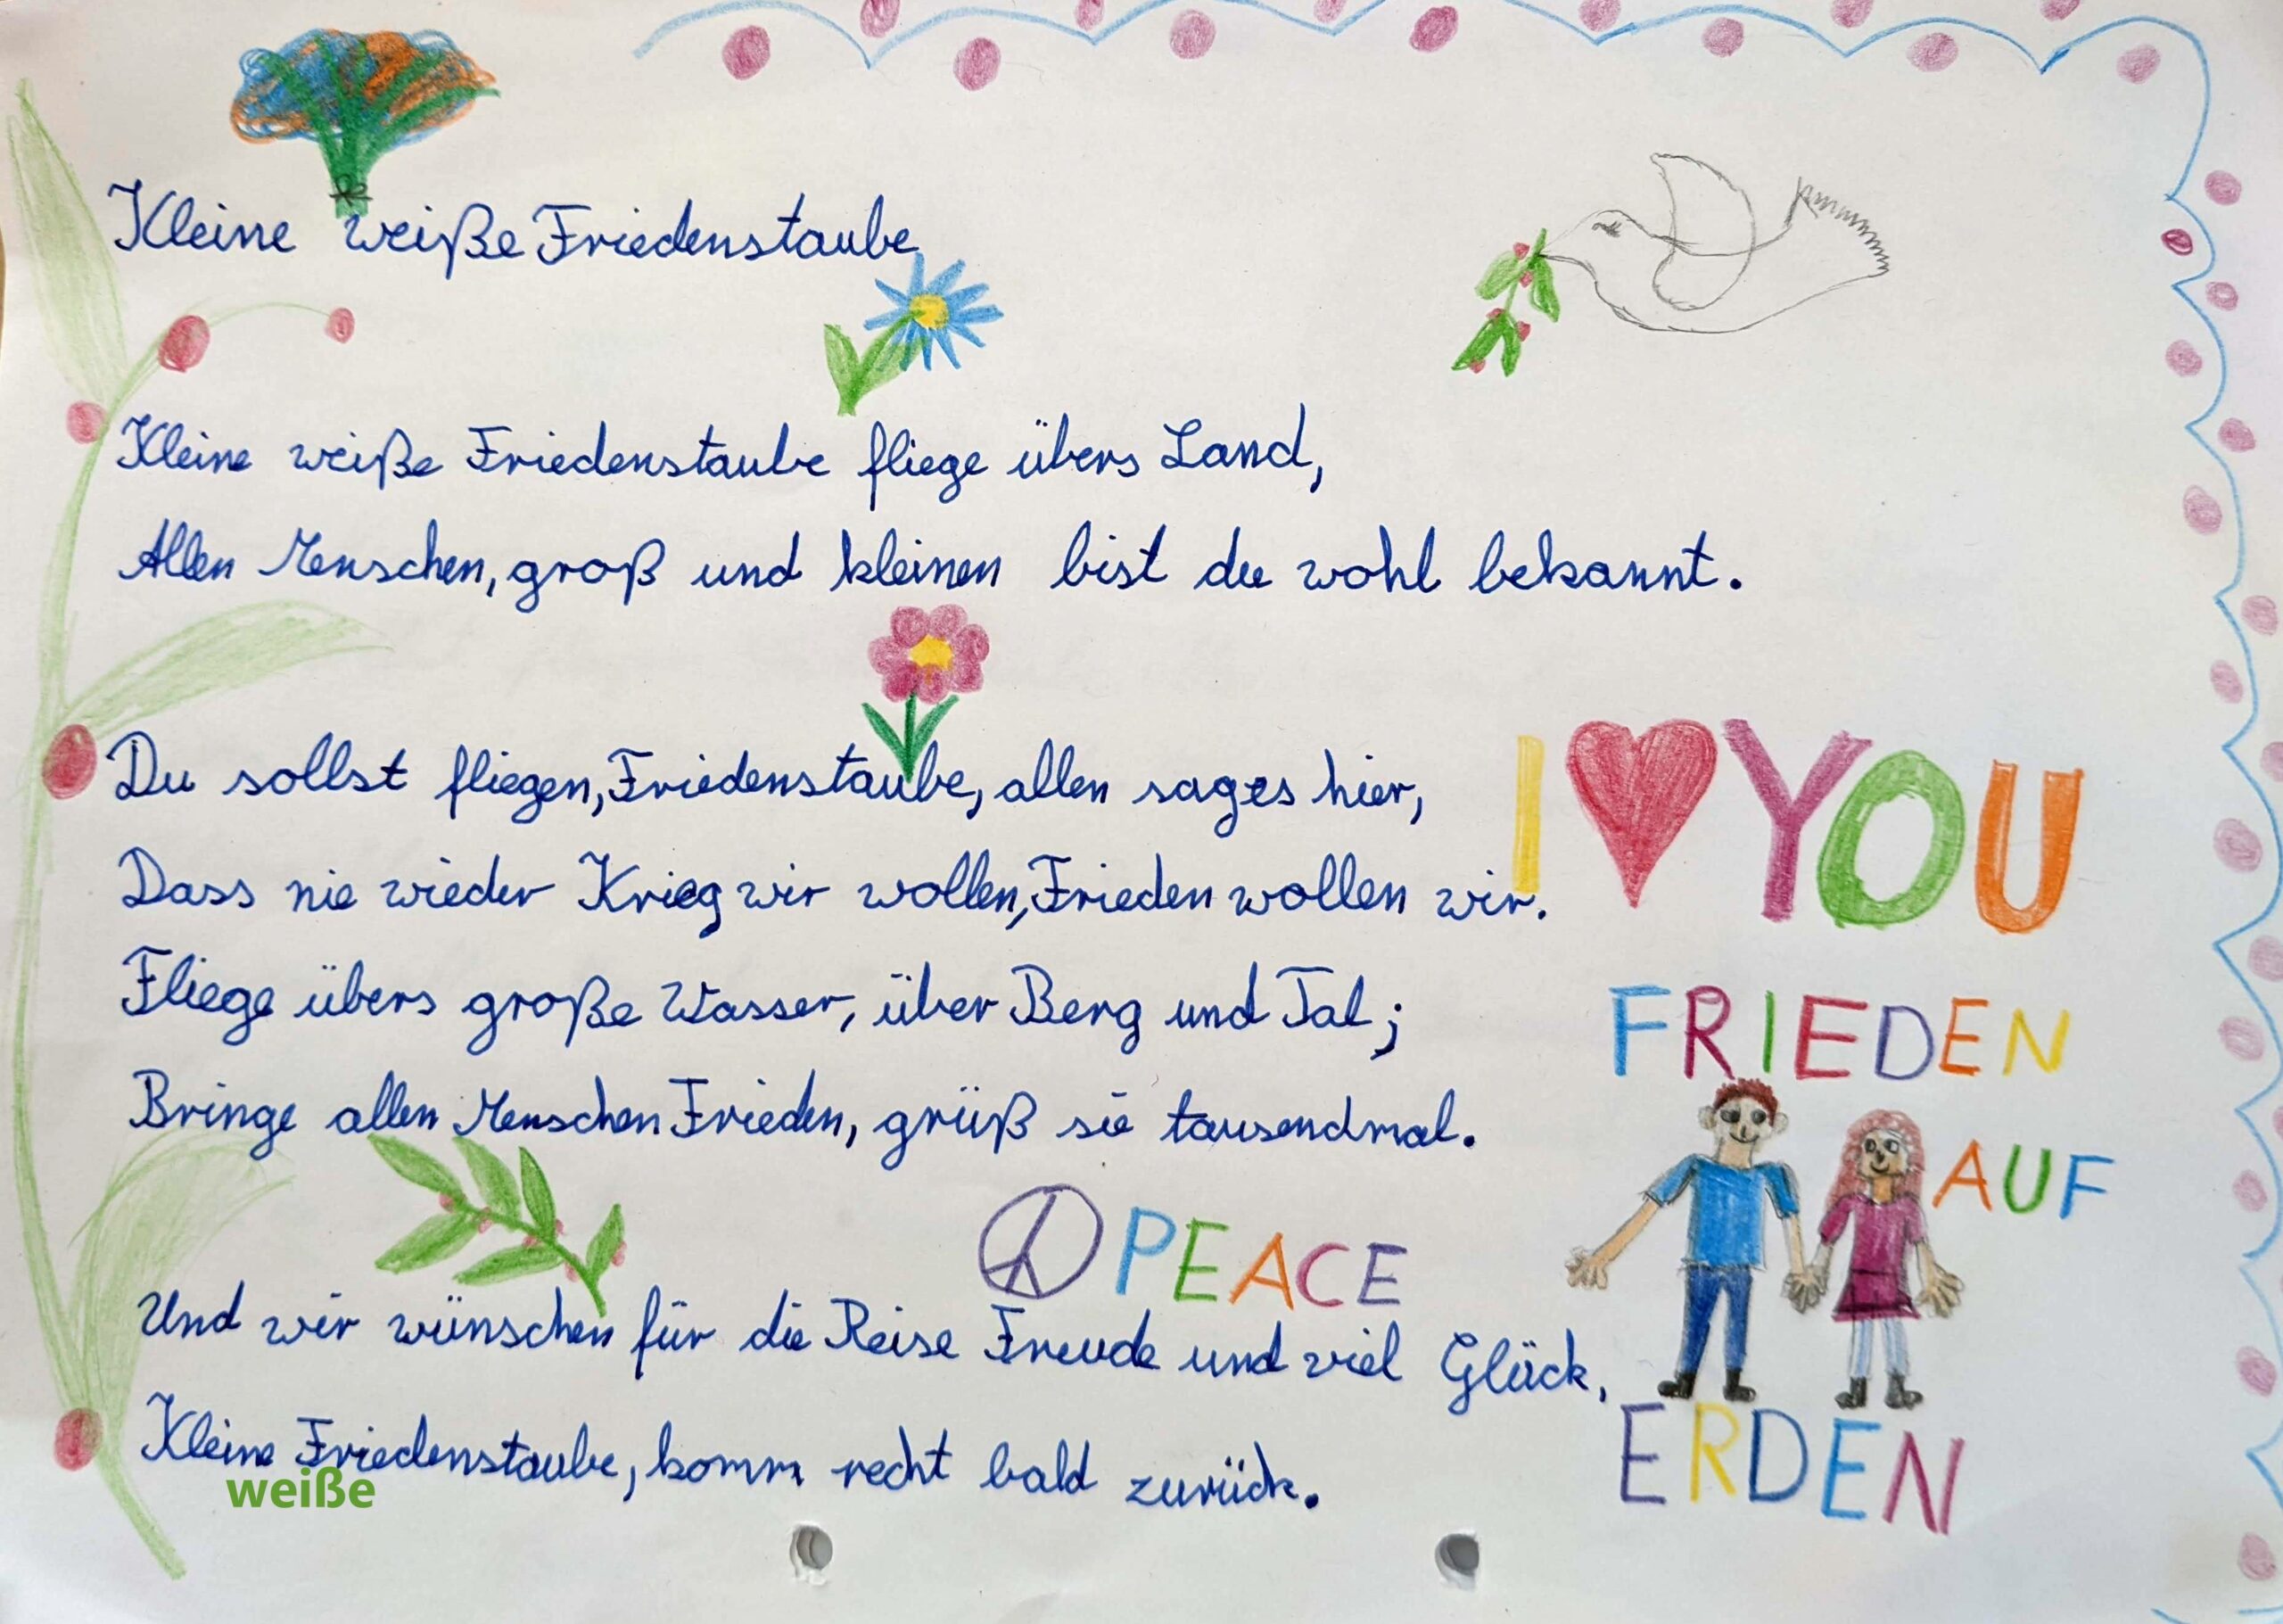 Kleine weiße Friedenstaube
Kleine weiße Friedenstaube fliege übers Land,
Allen Menschen, groß und kleinen bist du wohl bekannt.
Du sollst fliegen, Friedenstaube, allen sag es hier,
Dass nie wieder Krieg wir wollen, Frieden wollen wir.
Fliege übers große Wasser, über Berg und Tal;
Bringe allen Menschen Frieden, grüß sie tausendmal.
Und wir wünschen für die Reise Freude und viel Glück,
Kleine Friedenstaube, komm recht bald zurück.
weiße
PEACE
I ♥ YOU
FRIEDEN
AUF
ERDEN